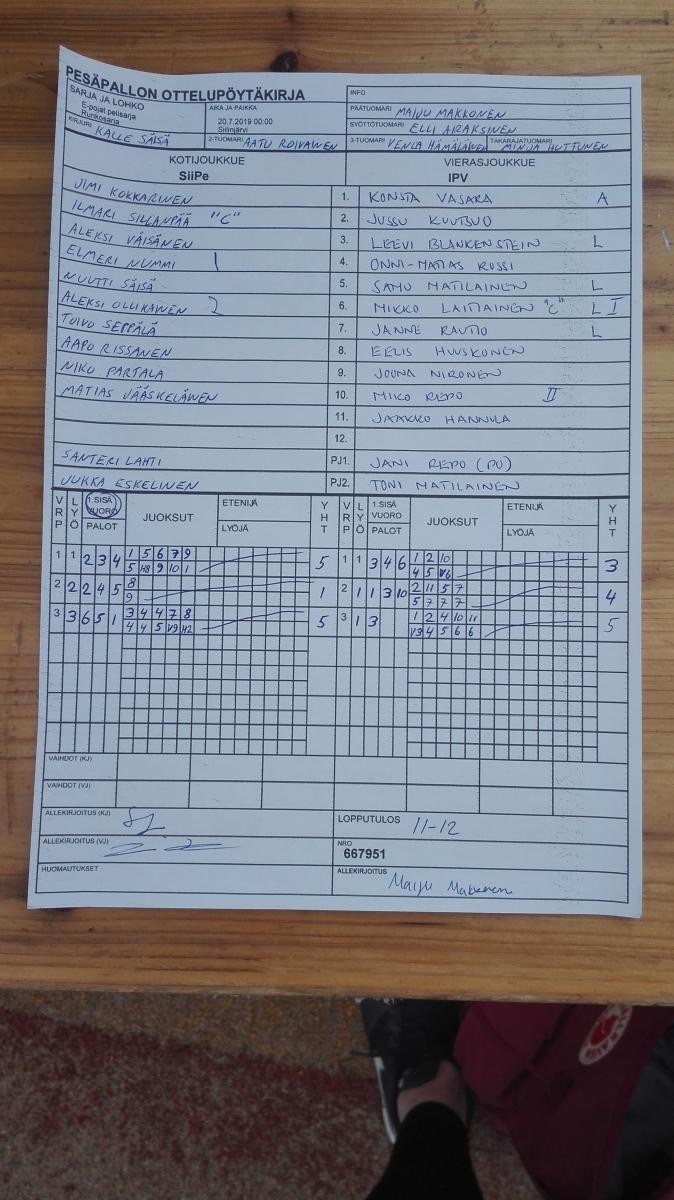 PESÄPALLON OTTELUPÖYTÄKIRJA
SARJA JA LOHKO
E-pojat pelisarja
Runkosarja
AIKA JA PAIKKA
20.7.2019 00:00
Siilinjärvi
INFO
PÄÄTUOMARI MAIJU MAKKONEN
SYÖTTÖTUOMARI ELLI AIRAKSINEN
KIRJURI KALLE SÄISÄ
2-TUOMARI AATU ROIVAINEN
3-TUOMARI VENLA HÄMÄLÄINEN
TAKARAJATUOMARI MINJA HUTTUNEN
KOTIJOUKKUE
SiiPe
VIERASJOUKKUE
IPV
JIMI KOKKARINEN 1. KONSTA VASARA A
ILMARI SILLANPÄÄ "C" 2. JUSSU
ALEKSI VÄISÄNEN 3. LEEVI BLANKENSTEIN L
ELMERI NUMMI 1 4. ONNI-MATIAS ROSSI
NUUTTI SÄISÄ 5. SAMU MATILAINEN L
ALEKSI OLLIKAINEN 2 6. MIKKO LAITIAINEN "C" L I
TOIVO SEPPÄLÄ 7. JANNE RAUTIO L
AAPO RISSANEN 8. EELIS HUUSKONEN
NIKO PARTALA 9. JOONA NIRONEN
MATIAS JÄÄSKELÄINEN 10. MIKO REPO II
11. JAAKKO HANNULA
12.
SANTERI LAHTI PJ1. JANI REPO (PO)
JUKKA ESKELINEN PJ2. TONI MATILAINEN
VRP LYÖ 1.SISÄ VUORO PALOT JUOKSUT ETENIJÄ LYÖJÄ YHT VRP LYÖ 1.SISÄ VUORO PALOT JUOKSUT ETENIJÄ LYÖJÄ YHT
1 1 2 3 4 1 5 6 7 9 5 1 1 3 4 6 1 2 10 3
5 H8 9 10 1 4 5 V6
2 2 2 4 5 8 1 2 1 1 3 10 2 11 5 7 4
9 5 7 7 7
3 3 6 5 1 3 4 4 7 8 5 3 1 3 1 2 4 10 11 5
4 4 5 V9 H2 V3 4 5 6 6
VAIHDOT (KJ)
VAIHDOT (VJ)
ALLEKIRJOITUS (KJ)
LOPPUTULOS 11-12
ALLEKIRJOITUS (VJ)
NRO
667951
HUOMAUTUKSET
ALLEKIRJOITUS Maiju Makkonen